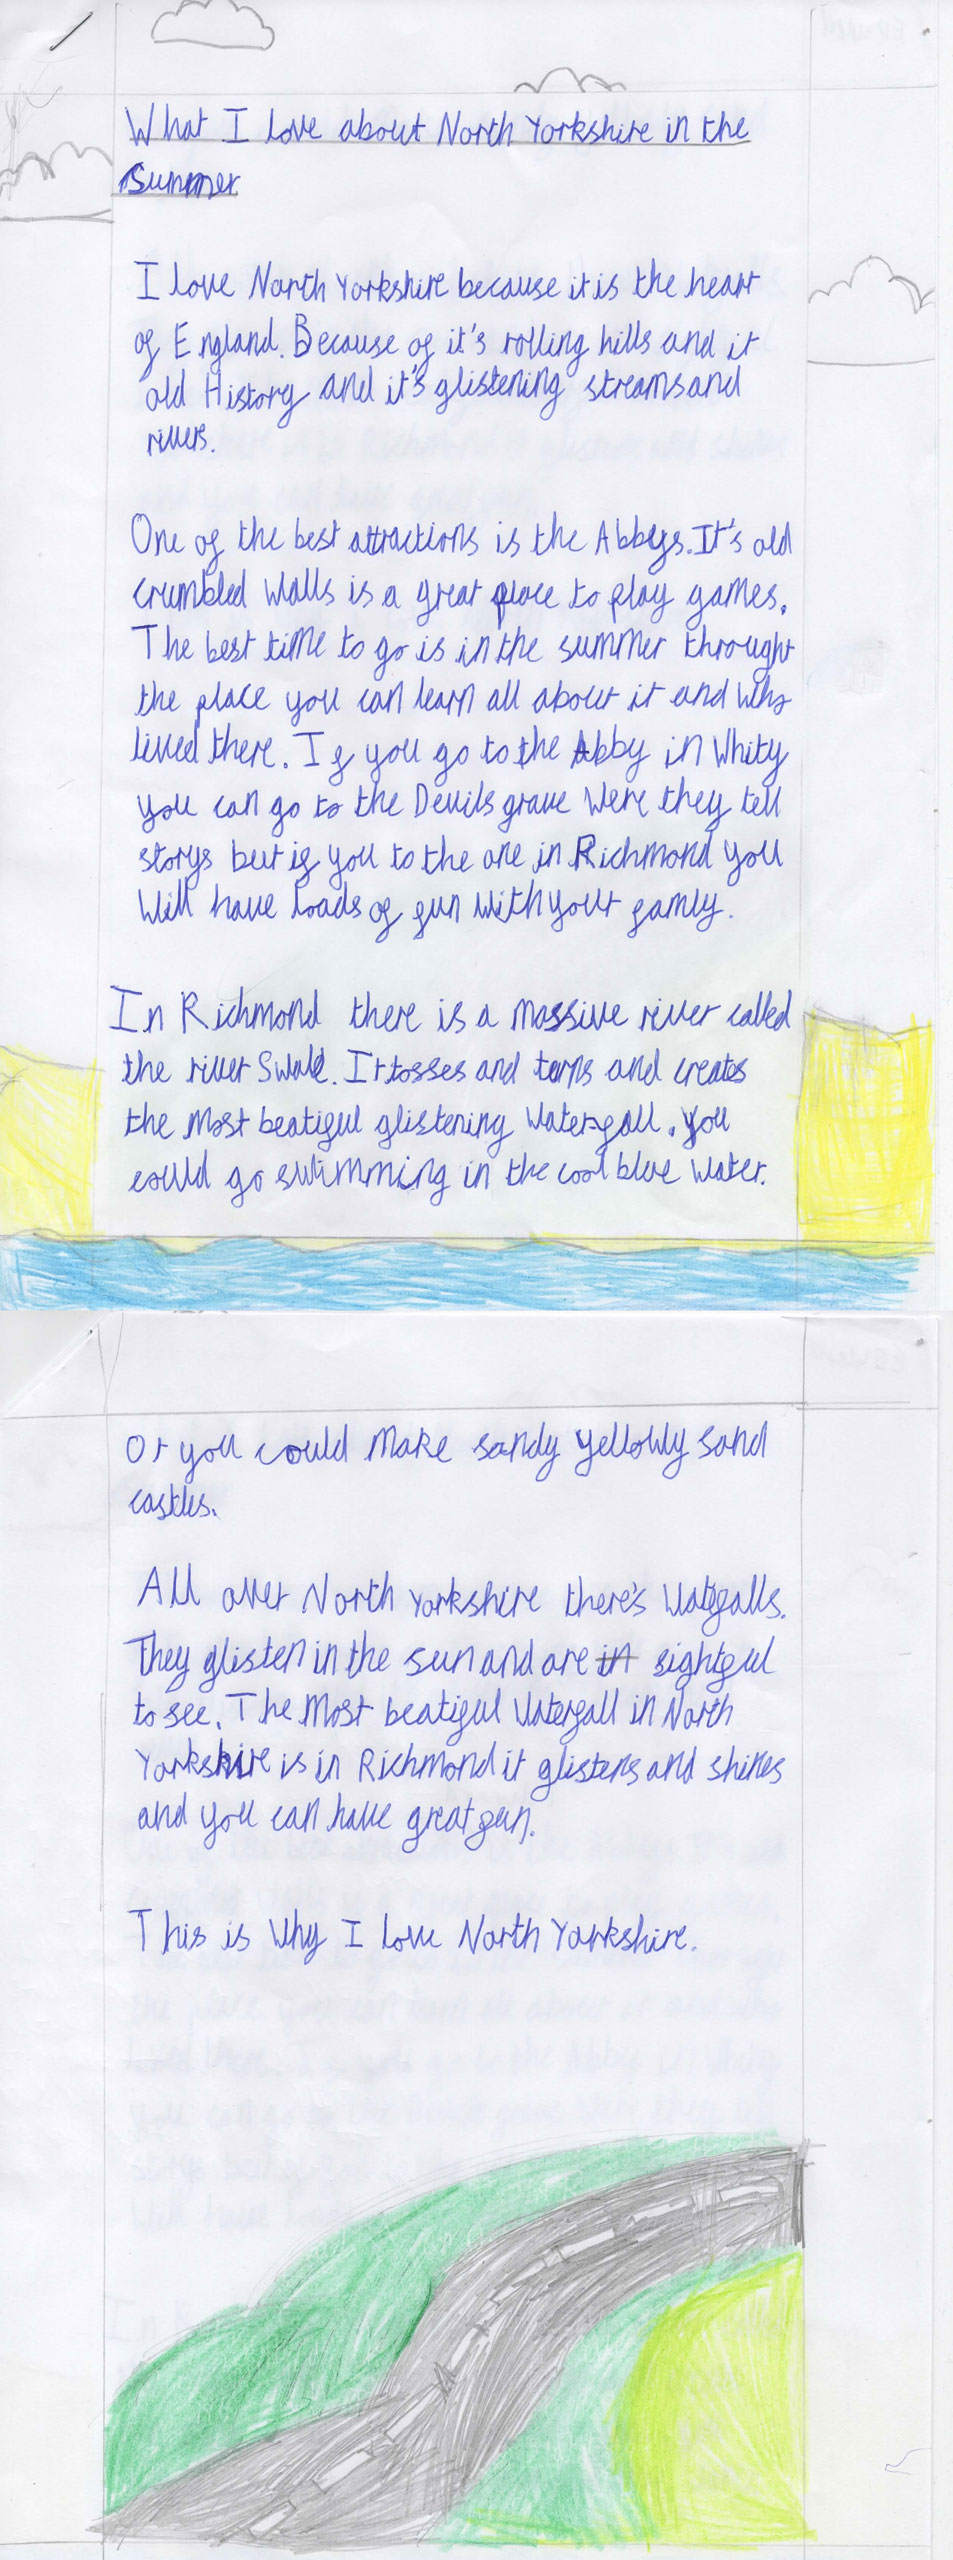 What I love about North Yorkshire in the
Summer
I love North Yorkshire because it is the heart
of England. Because of it's rolling hills and it
old History and it's glistening streams and
rivers.
One of the best attractions is the Abbeys. It's old
crumbled walls is a great place to play games.
The best time to go is in the summer throught
the place you can learn all about it and who
lived there. If you go to the Abby in Whity
you can go to the Devils grave were they tell
storys but if you to the one in Richmond you
will have loads of fun with your famly.
In Richmond there is a massive river called
the river Swale. It tosses and terns and creates
the most beatiful glistening waterfall. You
could go swimming in the cool blue water.
Or you could make sandy yellowly sand
castles.
All over North Yorkshire there's watefalls.
They glisten in the sun and are in sightful
to see. The most beatiful waterfall in North
Yorkshire is in Richmond it glistens and shines
and you can have great fun.
This is why I love North Yorkshire.